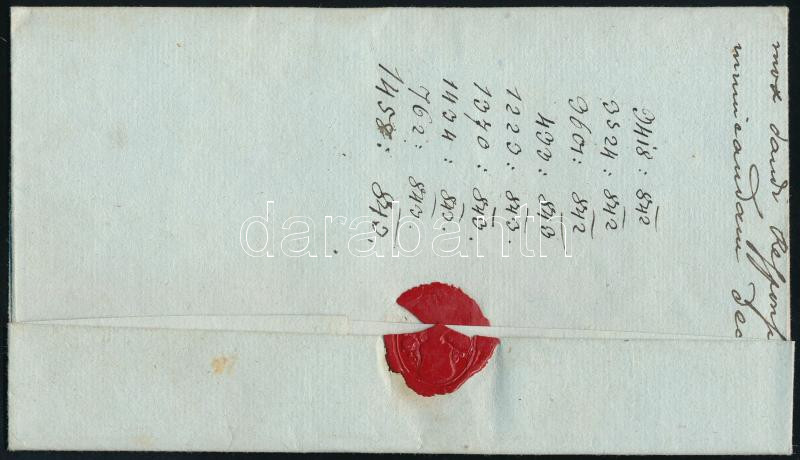 mox dandi Respons
municandam Dec
3418: 842
3524: 842
3601: 842
433: 843
1223: 843.
1370: 843.
1434: 843.
762: 843.
1458: 843.
darabanth